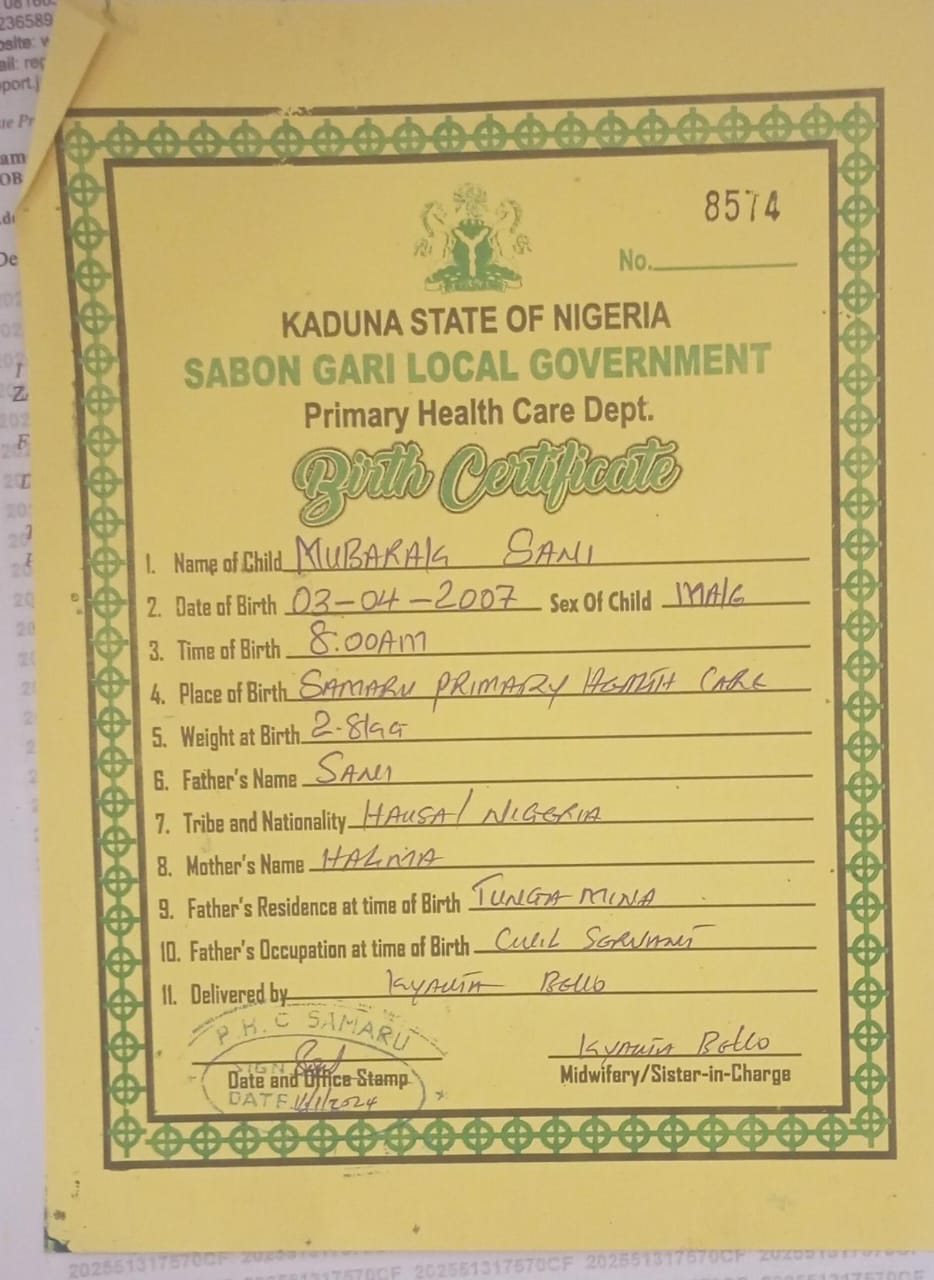 08160
236589
osite: w
ail: rep
port.j
ue Pr
am
OB
De
8574
No.
KADUNA STATE OF NIGERIA
SABON GARI LOCAL GOVERNMENT
Primary Health Care Dept.
Birth Certificate
1. Name of Child MUBARAK SANI
2. Date of Birth 03-04-2007 Sex Of Child MALE
3. Time of Birth 8:00AM
4. Place of Birth SAMARU PRIMARY HEALTH CARE
5. Weight at Birth 2.8KG
6. Father's Name SANI
7. Tribe and Nationality HAUSA / NIGERIA
8. Mother's Name HALIMA
9. Father's Residence at time of Birth TUNGA MINA
10. Father's Occupation at time of Birth CIVIL SERVANT
11. Delivered by Kyauta Bello
P.H.C SAMARU
SIGN
Kyauta Bello
Date and Office Stamp Midwifery/Sister-in-Charge
DATE 1/1/2024
202551317570CF 202551317570CF 202551317570CF